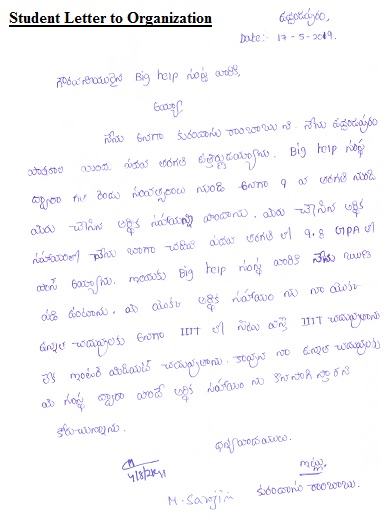 Student Letter to Organization
ఉప్పరపల్లి,
Date:- 17-5-2019.
గౌరవనీయులైన Big help సంస్థ వారికి,
అయ్యా
నేను అనగా రాంబాబు ని. నేను
పాఠశాల యందు పదవ తరగతి ఉత్తీర్ణుడయ్యాను. Big help సంస్థ
ద్వారా గత రెండు సంవత్సరాలు నుండి అనగా 9 వ తరగతి నుండి
మీరు చేసిన ఆర్థిక సహాయాన్ని పొందాను. మీరు చేసిన ఆర్థిక
సహాయంతో నేను బాగా చదివి పదవ తరగతి లో 9.8 GPA తో
పాస్ అయ్యాను. అందుకు Big help సంస్థ వారికి నేను ఋణ
పడి ఉంటాను. మీ యొక్క ఆర్థిక సహాయం ను నా యొక్క
ఉన్నత చదువులకు అనగా IIIT లో సీటు వస్తే IIIT చదువుతాను
లేక ఇంటర్మీడియట్ చదువుతాను. కావున నా ఉన్నత చదువులకు
మీ సంస్థ ద్వారా వచ్చే ఆర్థిక సహాయం ను కొనసాగిస్తారని
కోరుచున్నాను.
ధన్యవాదములు.
ఇట్లు,
రాంబాబు.